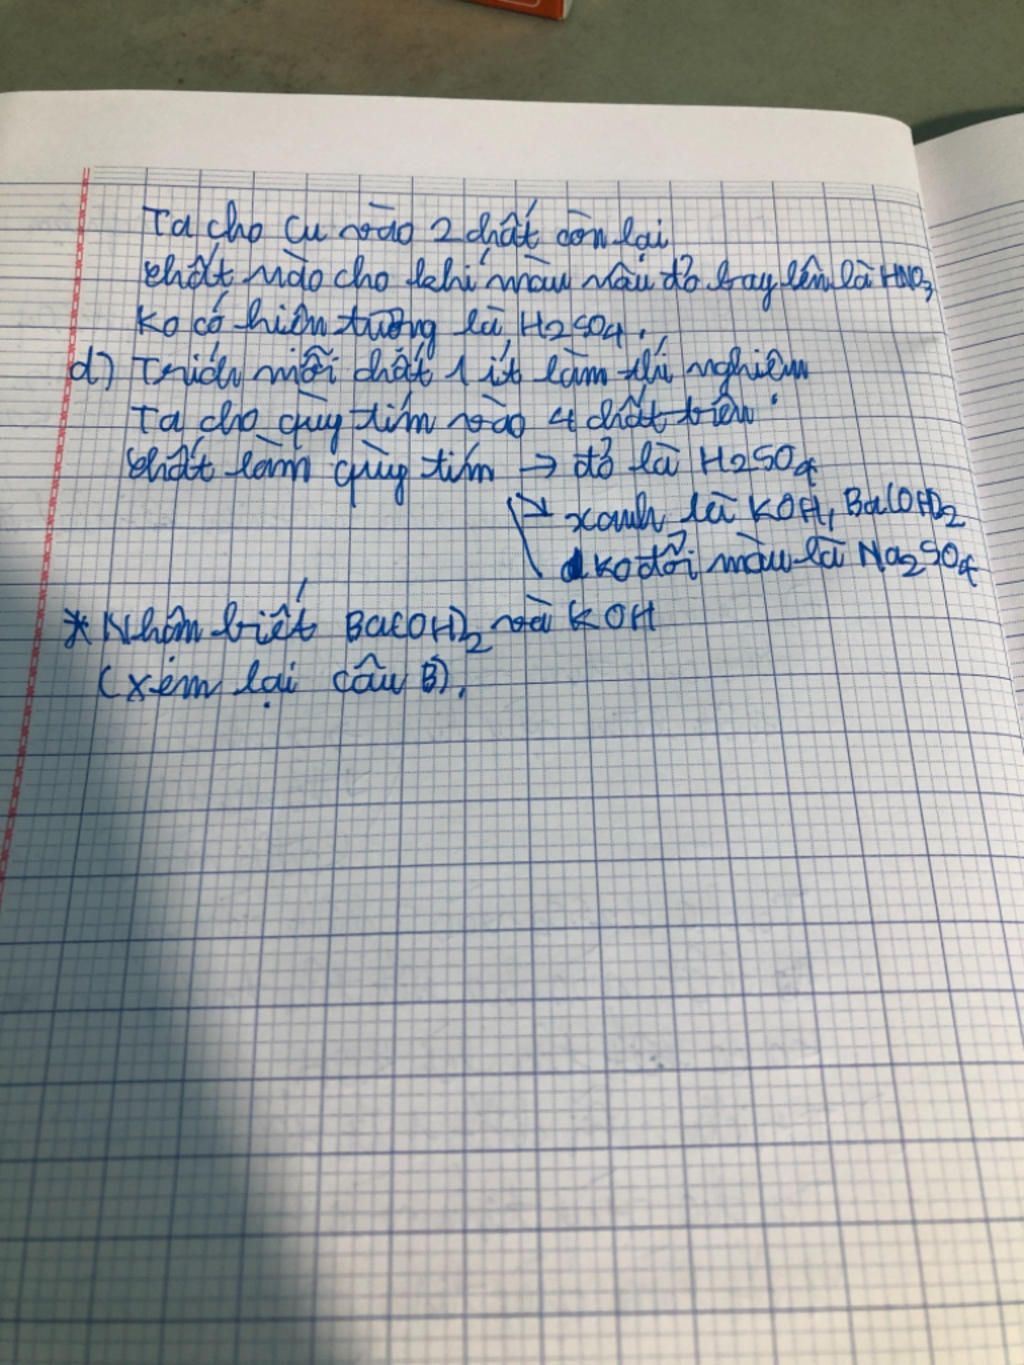 Ta cho Cu vào 2 chất còn lại
chất nào cho khí màu nâu đỏ bay lên là HNO3
Ko có hiện tượng là H2SO4.
d) Trích mỗi chất 1 ít làm thí nghiệm
Ta cho quỳ tím vào 4 chất trên
chất làm quỳ tím → đỏ là H2SO4
→ xanh là KOH, Ba(OH)2
ko đổi màu là Na2SO4
* Nhận biết Ba(OH)2 và KOH
(xem lại câu B).